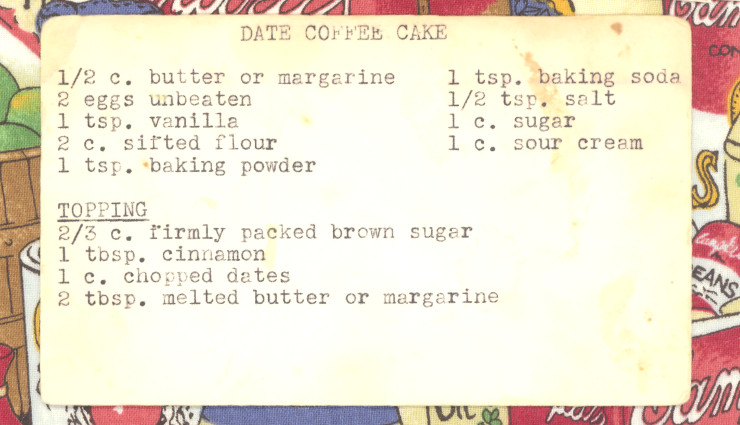 DATE COFFEE CAKE
1/2 c. butter or margarine
2 eggs unbeaten
1 tsp. vanilla
2 c. sifted flour
1 tsp. baking powder
1 tsp. baking soda
1/2 tsp. salt
1 c. sugar
1 c. sour cream
TOPPING
2/3 c. firmly packed brown sugar
1 tbsp. cinnamon
1 c. chopped dates
2 tbsp. melted butter or margarine
CON
S
BEANS